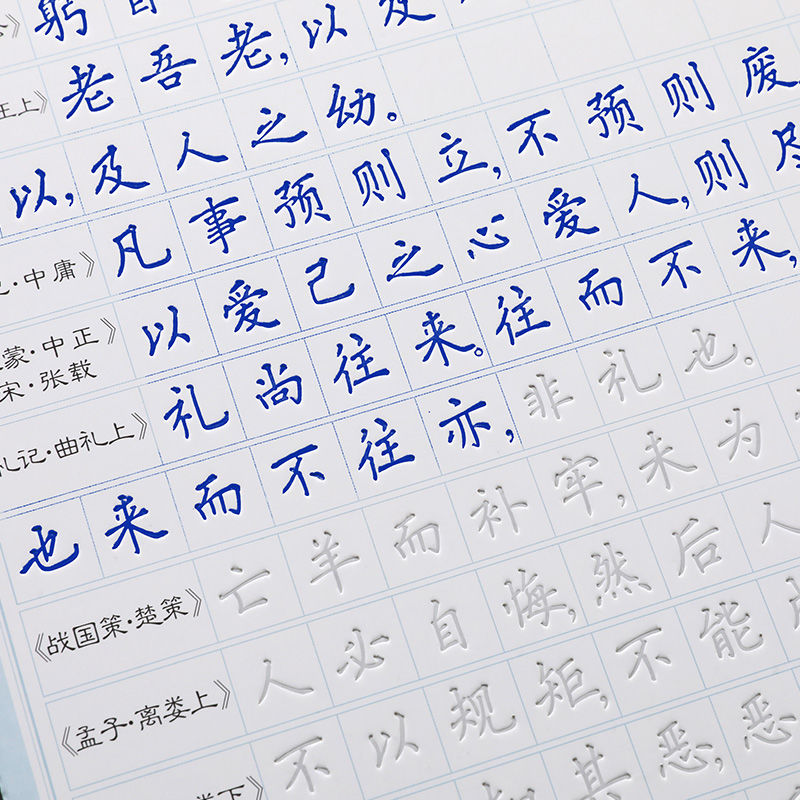 躬自
王上》老吾老,以及
以,及人之幼。
·中庸》凡事预则立,不预则废
蒙·中正》
宋·张载
以爱己之心爱人,则尽
礼记·曲礼上》礼尚往来。往而不来,
也来而不往亦,非礼也。
《战国策·楚策》亡羊而补牢,未为
《孟子·离娄上》人必自悔,然后人
不以规矩,不能
下》其恶,恶